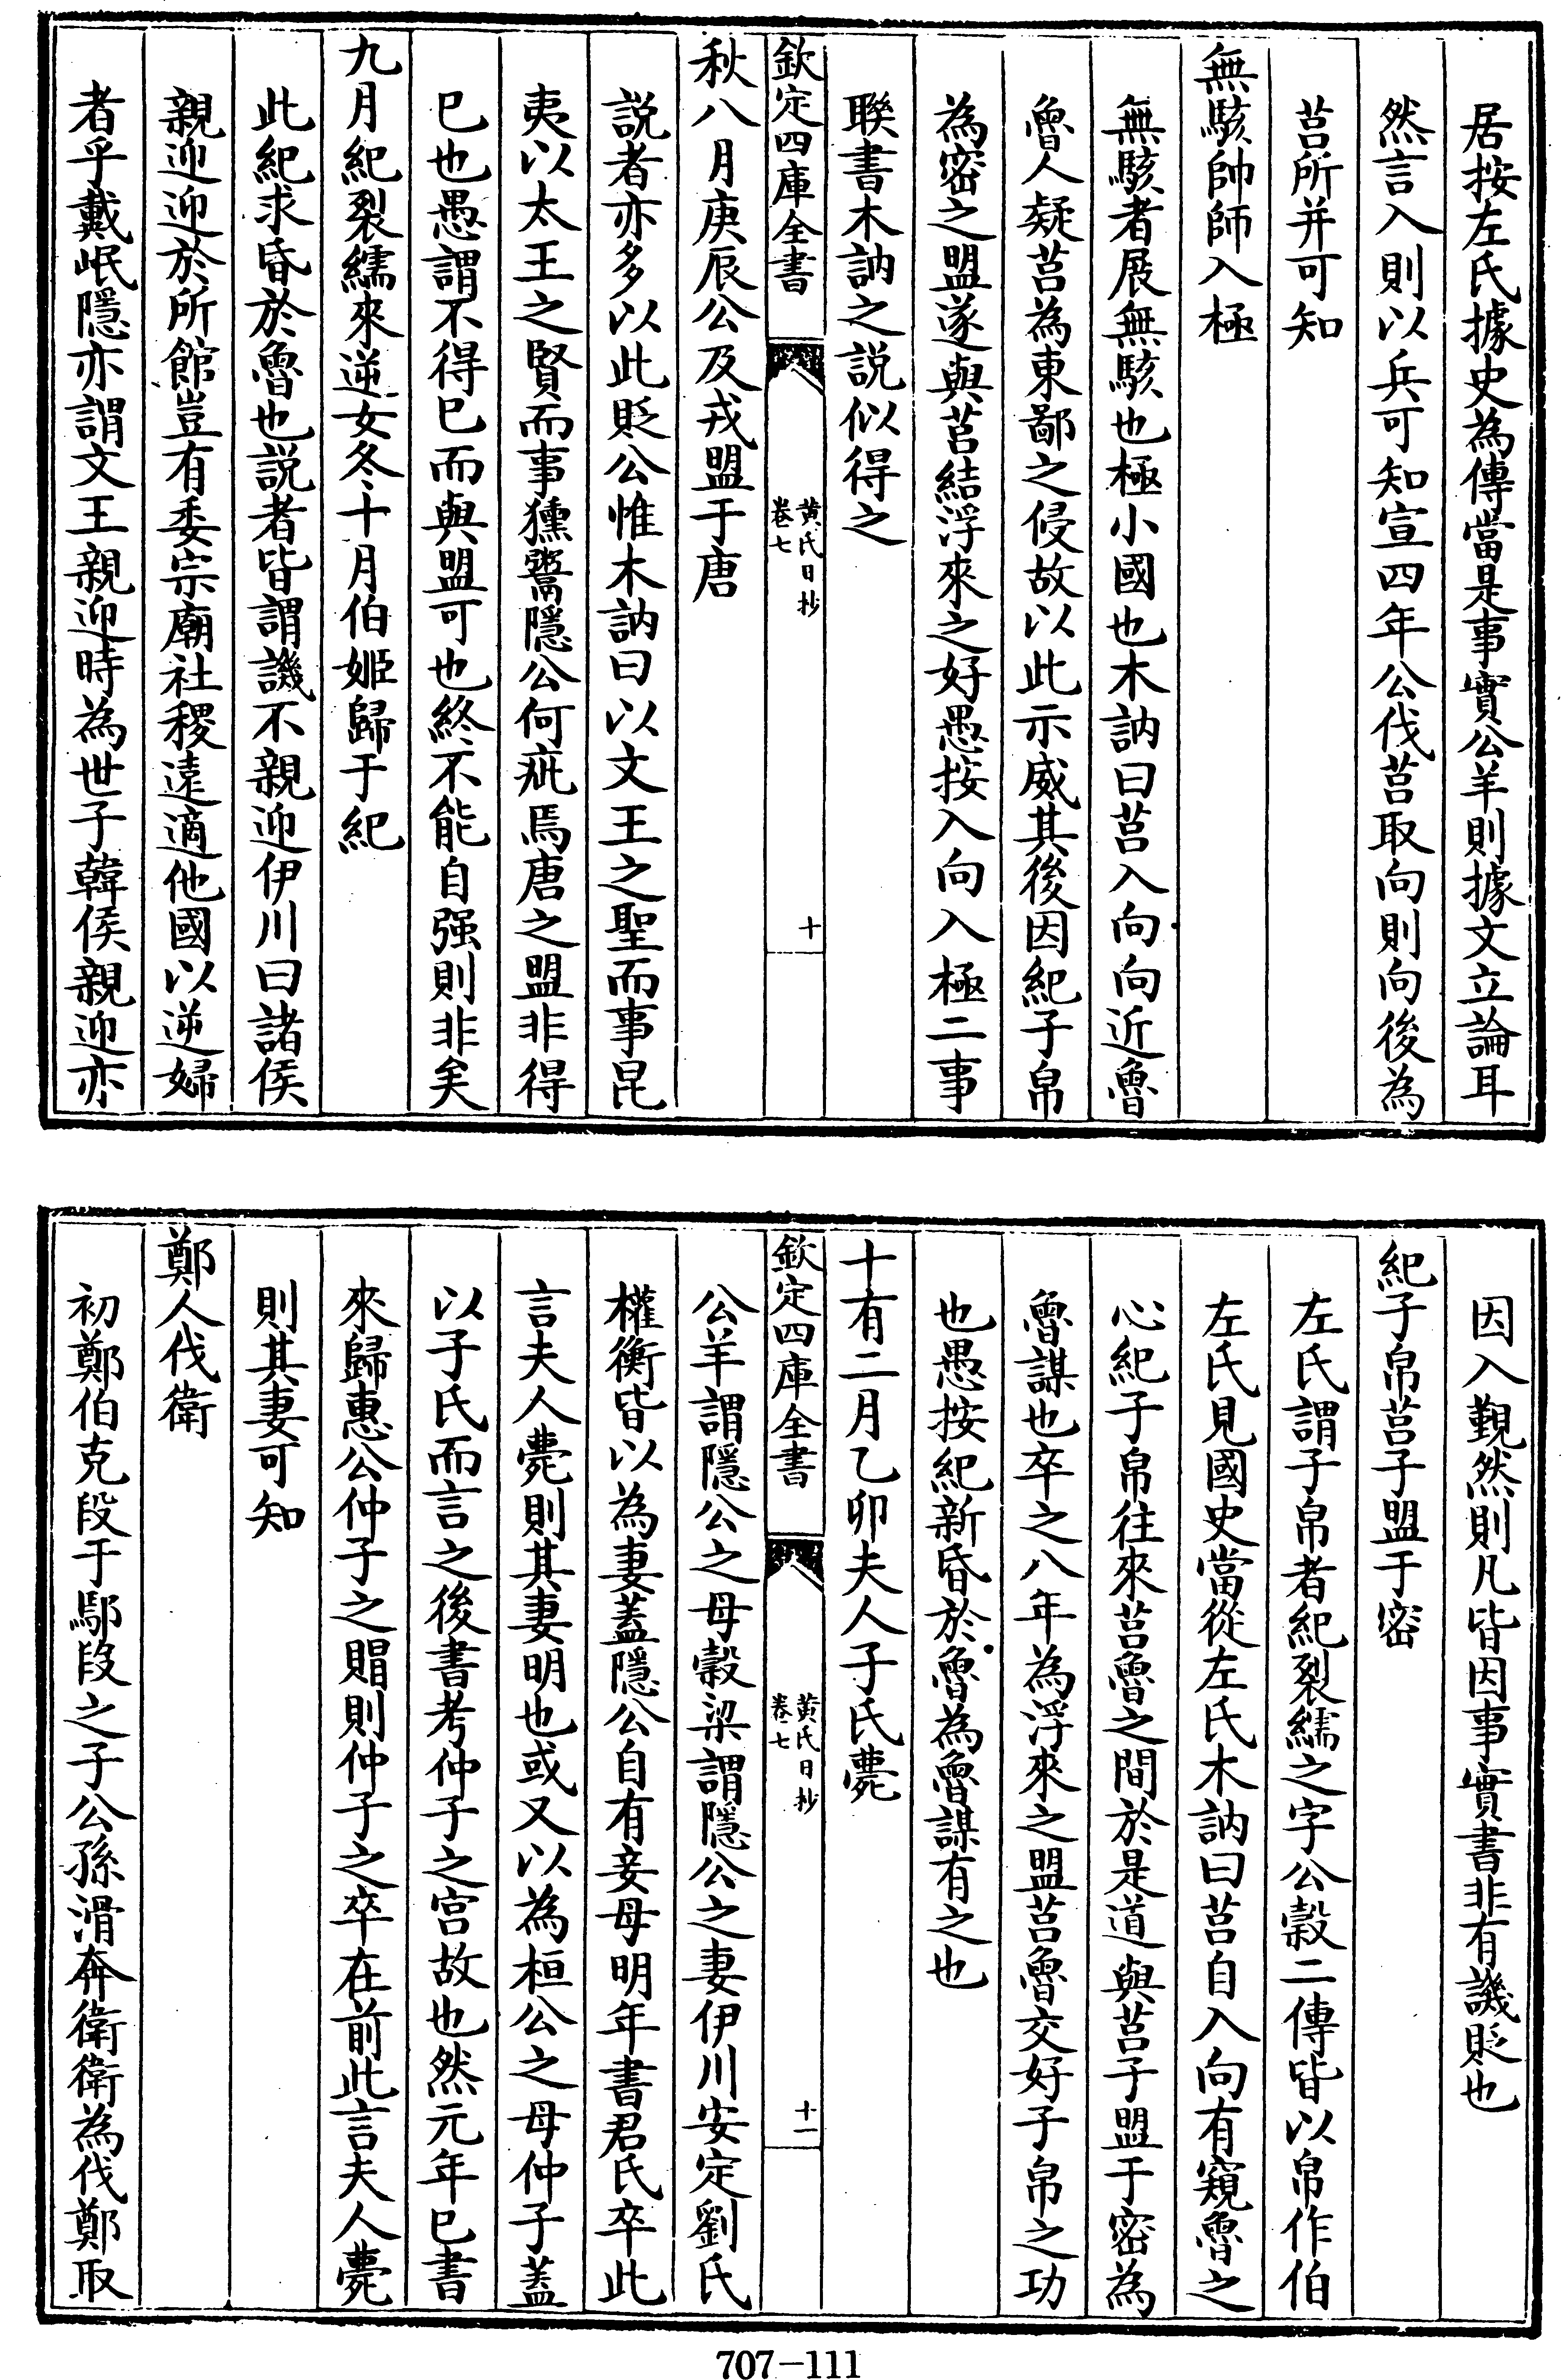 居按左氏據史為傳當是事實公羊則據文立論耳
然言入則以兵可知宣四年公伐莒取向則向後為
莒所并可知
無駭帥師入極
無駭者展無駭也極小國也木訥曰莒入向向近魯
魯人疑莒為東鄙之侵故以此示威其後因紀子帛
為密之盟遂與莒結浮來之好愚按入向入極二事
聯書木訥之説似得之
欽定四庫全書
黄氏日抄
卷七
十
秋八月庚辰公及戎盟于唐
説者亦多以此貶公惟木訥曰以文王之聖而事昆
夷以太王之賢而事獯鬻隱公何疵焉唐之盟非得
已也愚謂不得已而與盟可也終不能自强則非矣
九月紀裂繻來逆女冬十月伯姬歸于紀
此紀求昏於魯也説者皆謂譏不親迎伊川曰諸侯
親迎迎於所館豈有委宗廟社稷遠適他國以逆婦
者乎戴岷隱亦謂文王親迎時為世子韓侯親迎亦
因入覲然則凡皆因事實書非有譏貶也
紀子帛莒子盟于密
左氏謂子帛者紀裂繻之字公榖二傳皆以帛作伯
左氏見國史當從左氏木訥曰莒自入向有窺魯之
心紀子帛往來莒魯之間於是道與莒子盟于密為
魯謀也卒之八年為浮來之盟莒魯交好子帛之功
也愚按紀新昏於魯為魯謀有之也
十有二月乙卯夫人子氏薨
欽定四庫全書
黄氏日抄
卷七
十一
公羊謂隱公之母榖梁謂隱公之妻伊川安定劉氏
權衡皆以為妻蓋隱公自有妾母明年書君氏卒此
言夫人薨則其妻明也或又以為桓公之母仲子蓋
以子氏而言之後書考仲子之宫故也然元年已書
來歸惠公仲子之賵則仲子之卒在前此言夫人薨
則其妻可知
鄭人伐衛
初鄭伯克段于鄢段之子公孫滑奔衛衛為伐鄭取
707-111